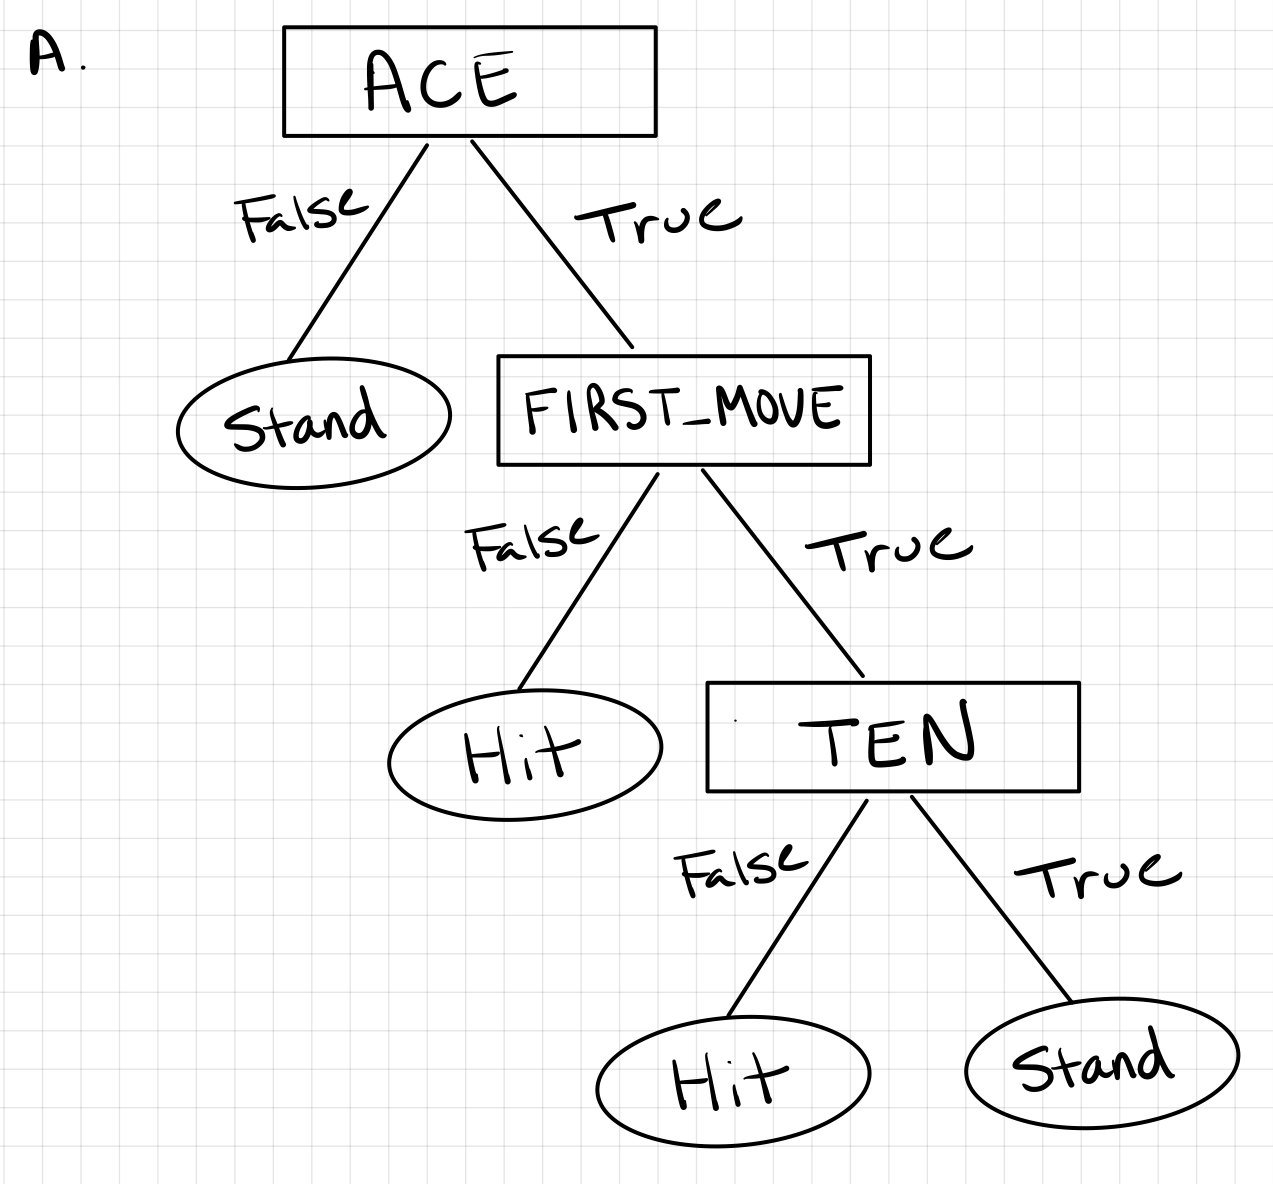 A.
ACE
False
True
Stand
FIRST_MOVE
False
True
Hit
TEN
False
True
Hit
Stand